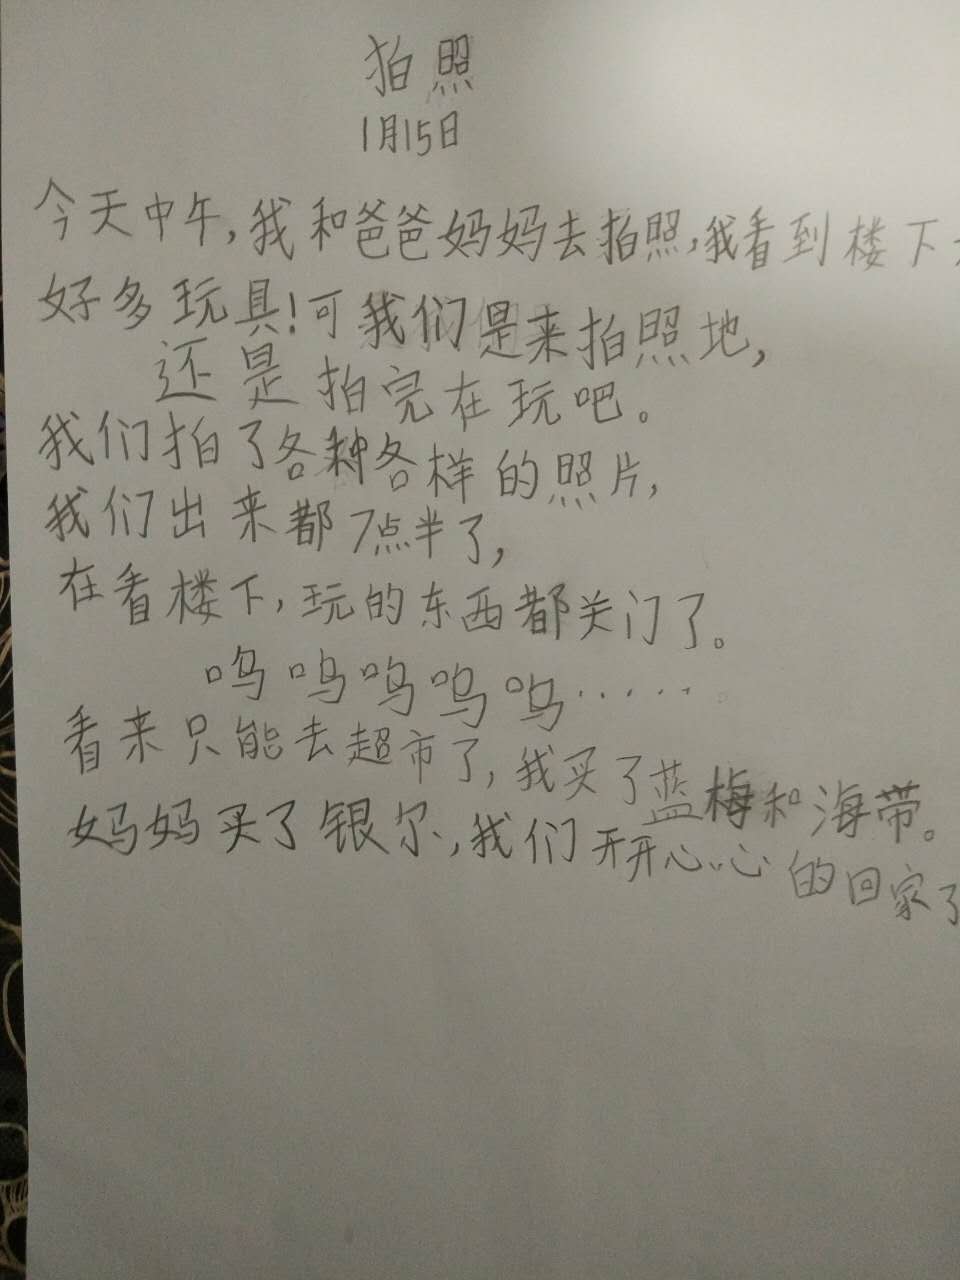 拍照
1月15日
今天中午,我和爸爸妈妈去拍照,我看到楼下
好多玩具!可我们是来拍照地,
还是拍完在玩吧。
我们拍了各种各样的照片,
我们出来都7点半了,
在看楼下,玩的东西都关门了。
呜呜呜呜呜······
看来只能去超市了,我买了蓝梅和海带。
妈妈买了银尔,我们开开心心的回家了